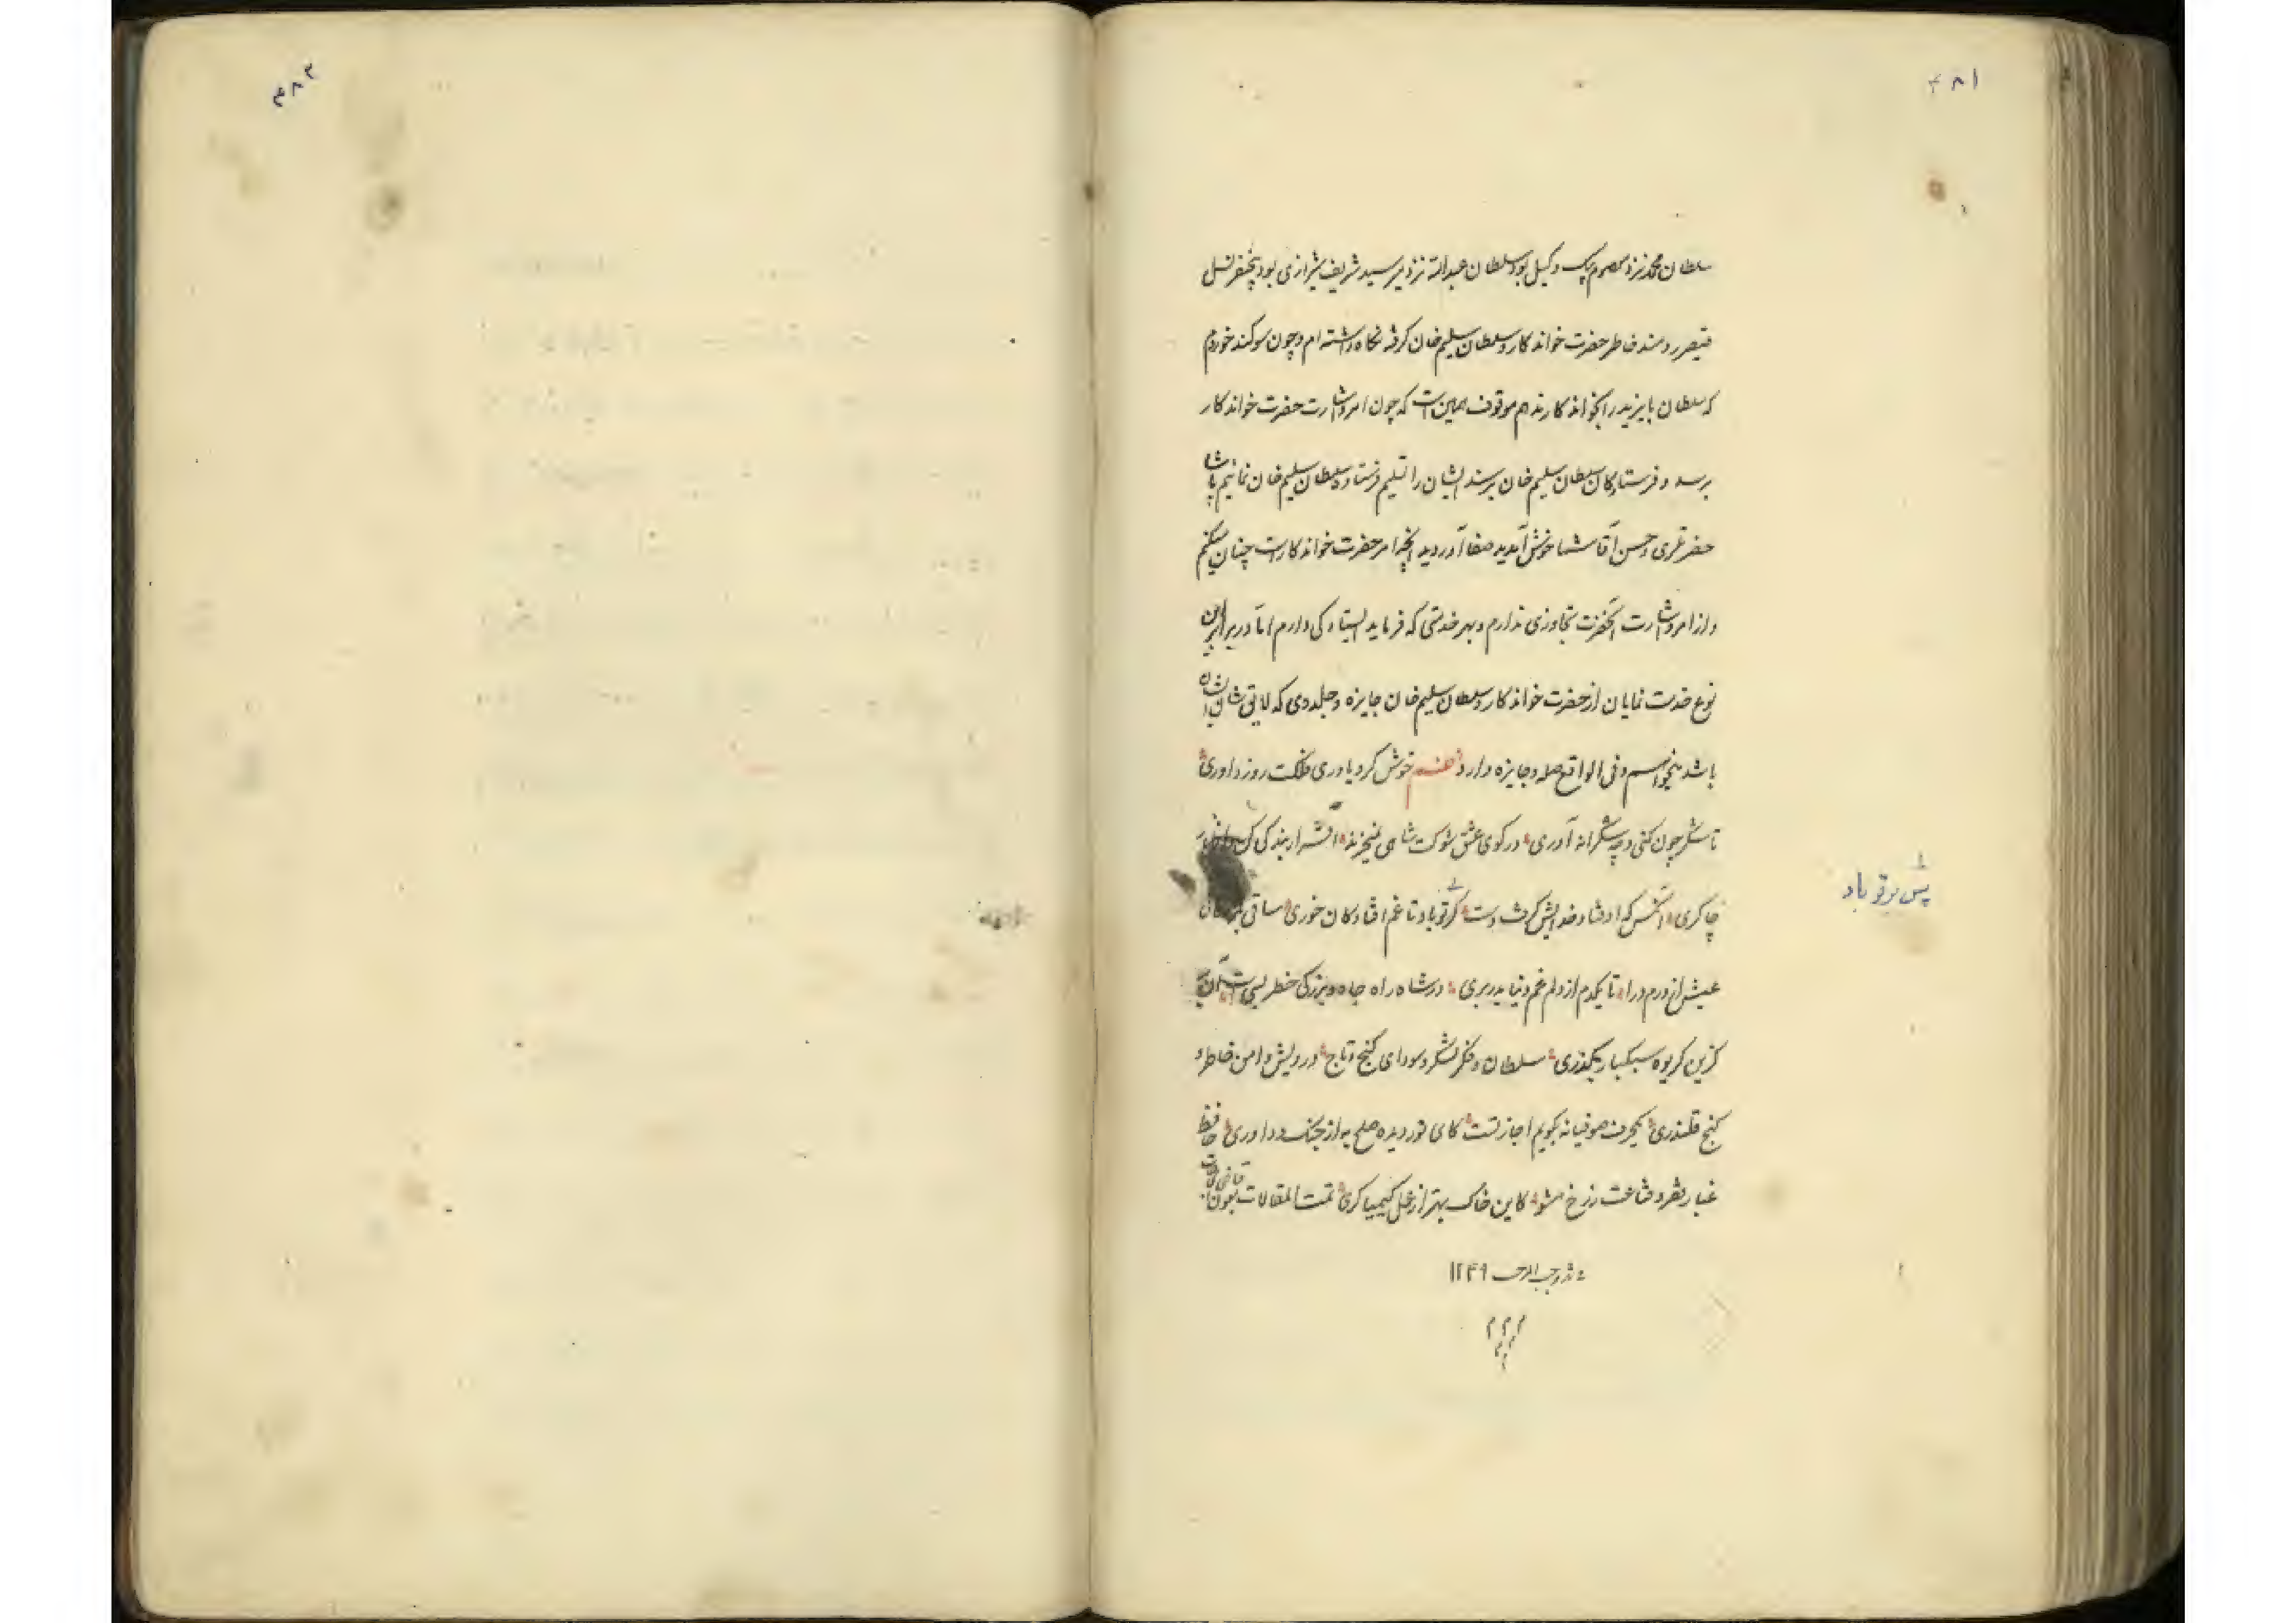 ۴۸۱
سلطان محمد نزد معصوم بیک وکیل بود و سلطان عبدالله نزد میر سید شریف شیرازی بود
قیصر روم خاطر حضرت خواندکار و سلطان سلیم خان کرفته نکاه داشته ام و چون سوکند خوردم
که سلطان بایزید را بخواندکار ندهم موقوف همین است که چون امر و اشارت حضرت خواندکار
برسد و فرستادکان سلطان سلیم خان برسند ایشان را تسلیم فرستاده سلطان سلیم خان نمائیم پاشا
حضرتلری و حسن آقا شما خوش آمدید صفا آوردید آنچه امر حضرت خواندکار است چنان میکنم
و از امر و اشارت آنحضرت تجاوزی ندارم و بهر خدمتی که فرماید ایستادکی دارم اما در برابر این
نوع خدمت نمایان از حضرت خواندکار و سلطان سلیم خان جایزه و جلدوی که لایق شان ایشان
باشد میخواهم و فی الواقع صله و جایزه دارد نظم خوش کرد یاوری فلکت روز داوری
تا شکر چون کنی و چه شکرانه آوری در کوی عشق شوکت شاهی نمیخرند اقرار بندکی کن و اظهار
چاکری آنکس که اوفتاد خدایش کرفت دست کر تو باد تا غم افتادکان خوری ساقی بمژدکانی
عیش از درم درا تا یکدم از دلم غم دنیا بدر بری در شاه راه جاه و بزرکی خطر بسی است آن به
کزین کریوه سبکبار بکذری سلطان و فکر لشکر و سودای کنج و تاج درویش و امن خاطر و
کنج قلندری یکحرف صوفیانه بکویم اجازتست کای نور دیده صلح به از جنک و داوری حافظ
غبار فقر و قناعت ز رخ مشو کاین خاک بهتر از عمل کیمیاکری تمت المقالات بعون
قاضی الحاجات
شهر رجب المرجب ۱۲۴۹
پس بر تو باد
۴۸۲